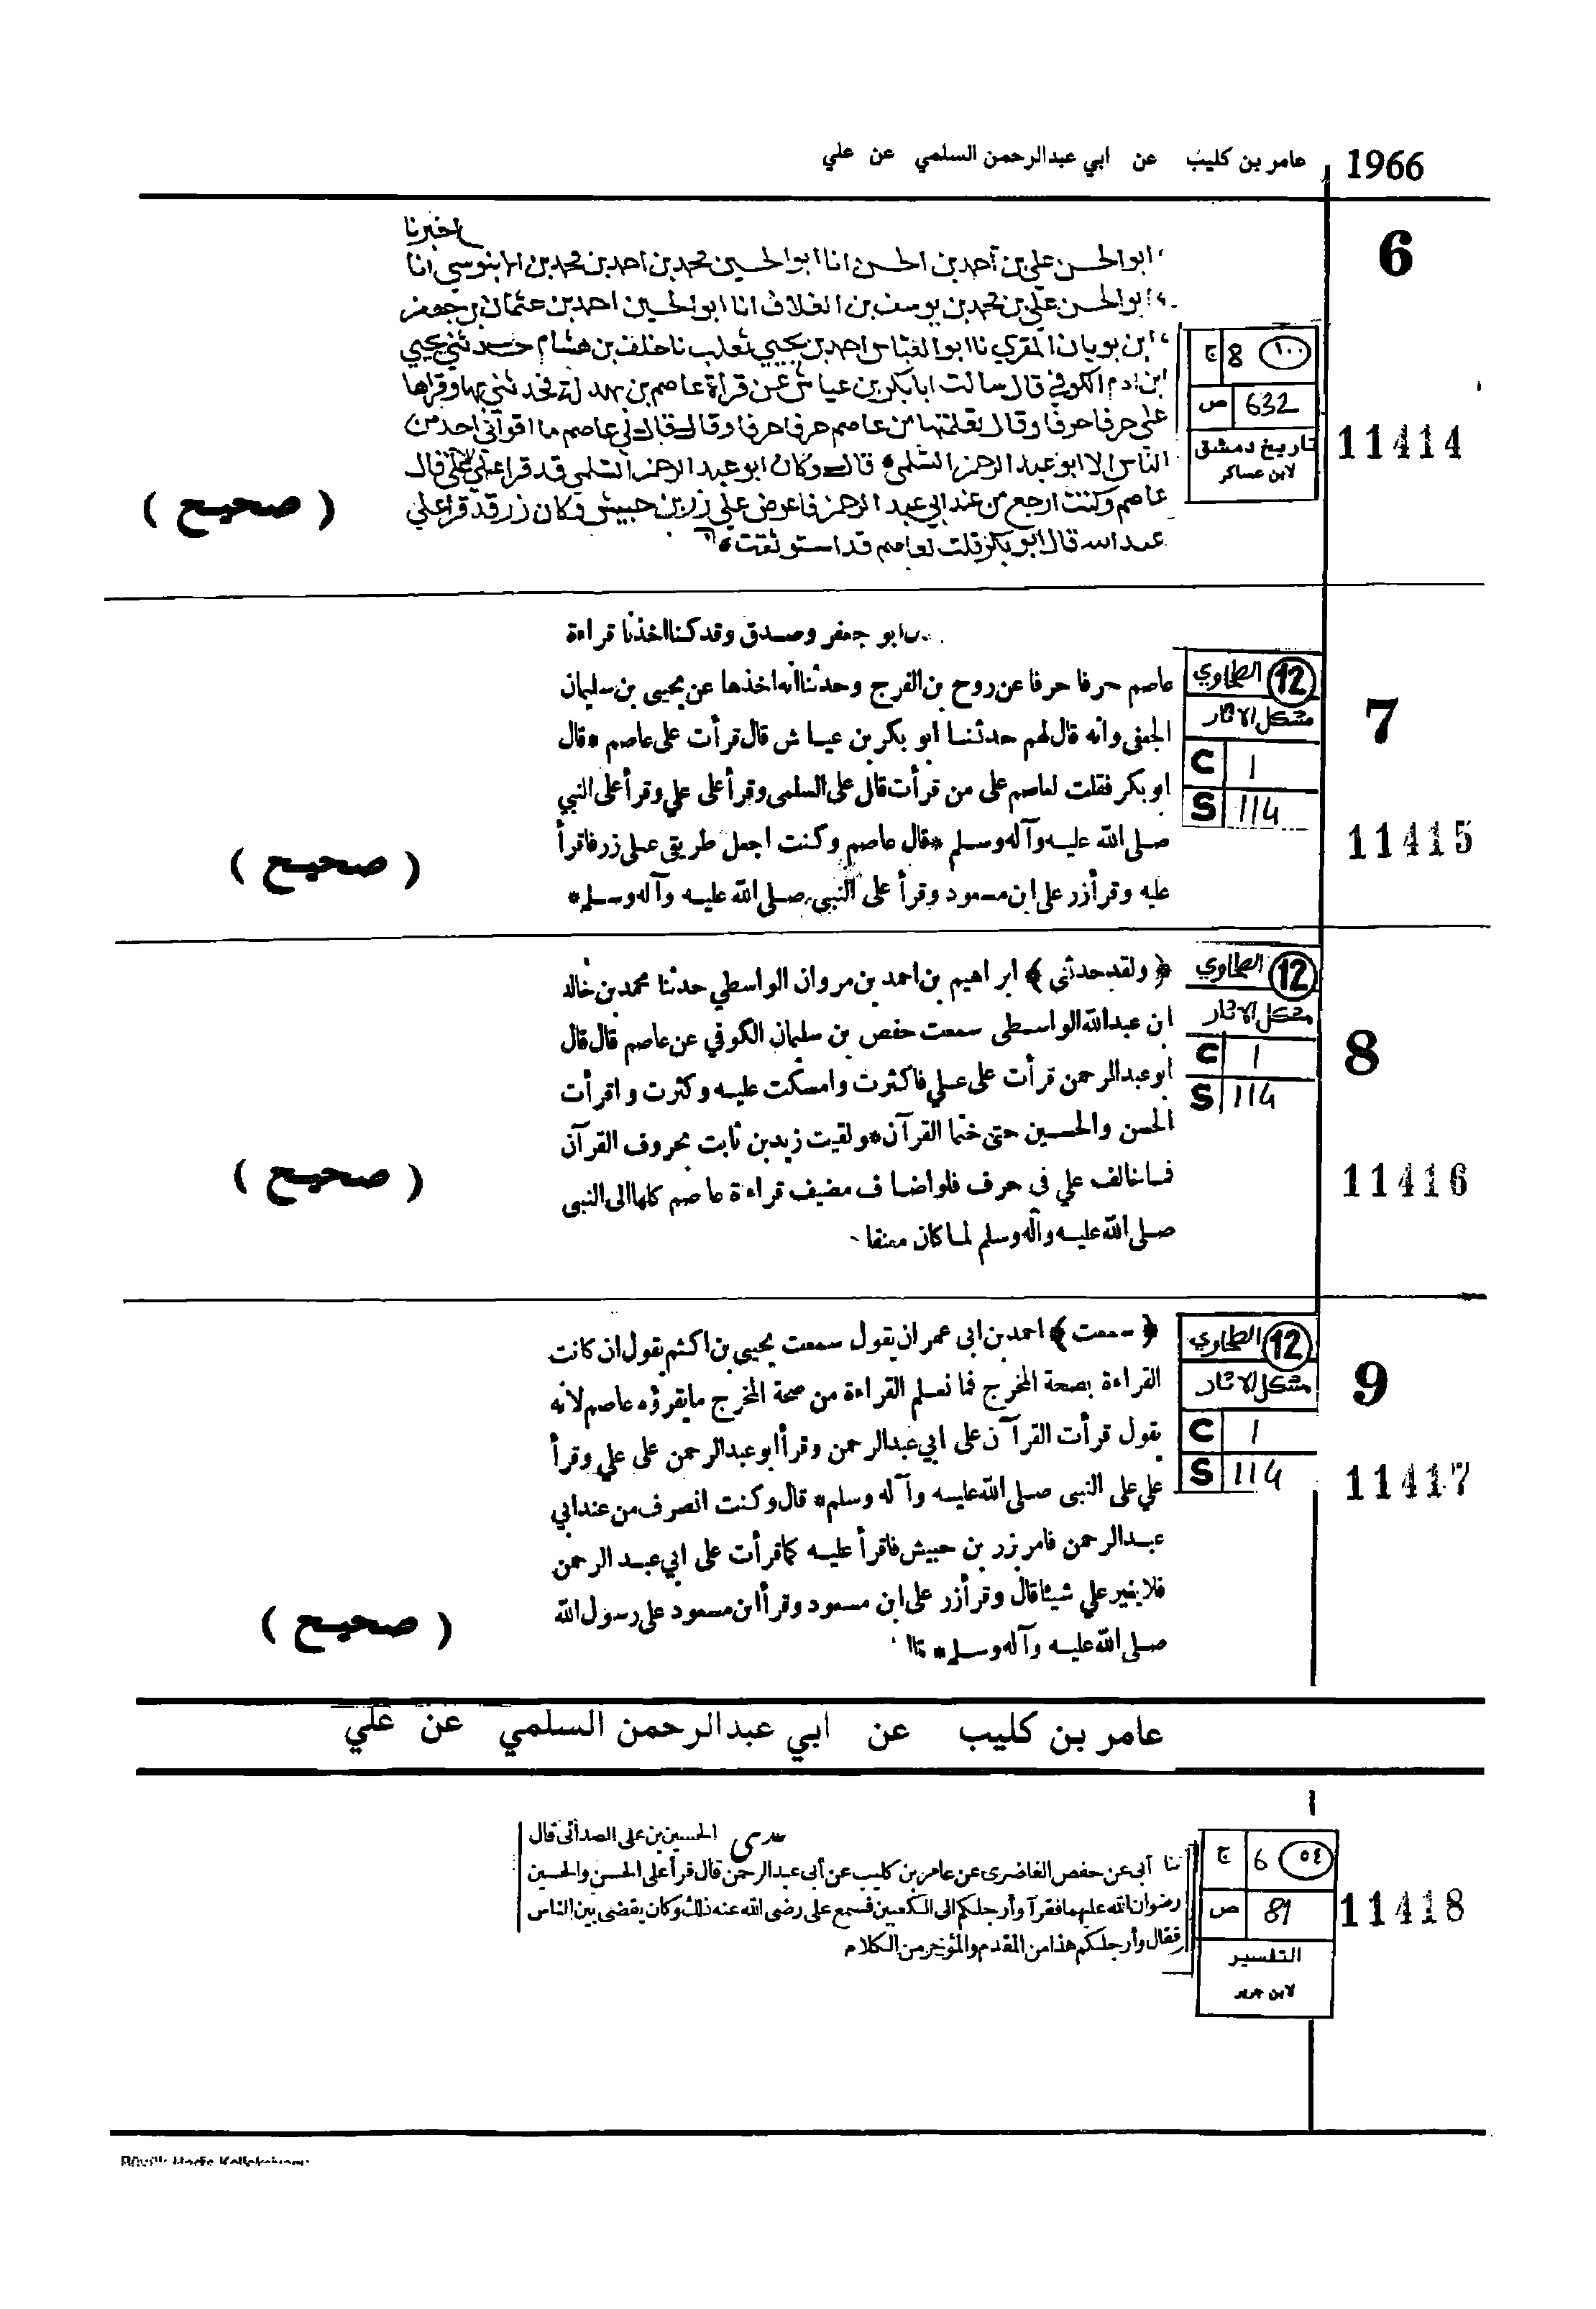 1966 عامر بن كليب عن ابي عبدالرحمن السلمي عن علي
6
اخبرنا
ابو الحسن علي بن احمد بن الحسن انا ابو الحسين محمد بن احمد بن محمد بن الابنوسي انا
ابو الحسن علي بن محمد بن يوسف بن العلاف انا ابو الحسين احمد بن عثمان بن جعفر
ابن بويان المقري نا ابو العباس احمد بن يحيي ثعلب نا خلف بن هشام حدثني يحيي
ابن ادم الكوفي قال سالت ابا بكر بن عياش عن قرأة عاصم بن بهدلة فحدثني بها وقراها
علي حرفا حرفا وقال تعلمتها من عاصم حرفا حرفا وقال قال لي عاصم ما اقرأني احد من
الناس الا ابو عبد الرحمن السلمي قال وكان ابو عبد الرحمن السلمي قد قرا علي علي قال
عاصم وكنت ارجع من عند ابي عبد الرحمن فاعرض علي زر بن حبيش وكان زر قد قرا علي
عبد الله قال ابو بكر قلت لعاصم قد استوثقت
ج 8 ١٠٠
ص 632
تاريخ دمشق
لابن عساكر
11414
( صحيح )
7
ابو جعفر وصدق وقد كنا اخذنا قراءة
عاصم حرفا حرفا عن روح بن الفرج وحدثنا انه اخذها عن يحيى بن سليمان
الجعفى وانه قال لهم حدثنا ابو بكر بن عياش قال قرأت على عاصم * قال
ابو بكر فقلت لعاصم على من قرأت قال على السلمى وقرأ على علي وقرأ على النبي
صلى الله عليه وآله وسلم * قال عاصم وكنت اجعل طريقى على زر فاقرأ
عليه وقرأ زر على ابن مسعود وقرأ على النبى صلى الله عليه وآله وسلم *
الطحاوي 12
مشكل الاثار
C 1
S 114
11415
( صحيح )
8
﴿ ولقد حدثنى ﴾ ابراهيم بن احمد بن مروان الواسطي حدثنا محمد بن خالد
ابن عبدالله الواسطى سمعت حفص بن سليمان الكوفي عن عاصم قال قال
ابو عبدالرحمن قرأت على علي فاكثرت وامسكت عليه وكثرت واقرأت
الحسن والحسين حتى ختما القرآن * ولقيت زيد بن ثابت بحروف القرآن
فما خالف علي فى حرف فلو اضاف مضيف قراءة عاصم كلها الى النبى
صلى الله عليه وآله وسلم لما كان معنفا
الطحاوي 12
مشكل الاثار
C 1
S 114
11416
( صحيح )
9
﴿ سمعت ﴾ احمد بن ابى عمران يقول سمعت يحيى بن اكثم يقول ان كانت
القراءة بصحة المخرج فما نعلم القراءة من صحة المخرج ما يقرؤه عاصم لانه
يقول قرأت القرآن على ابي عبدالرحمن وقرأ ابو عبدالرحمن على علي وقرأ
علي على النبى صلى الله عليه وآله وسلم * قال وكنت انصرف من عند ابي
عبدالرحمن فامر بزر بن حبيش فاقرأ عليه كما قرأت على ابي عبد الرحمن
فلا يغير علي شيئا قال وقرأ زر على ابن مسعود وقرأ ابن مسعود على رسول الله
صلى الله عليه وآله وسلم *
الطحاوي 12
مشكل الاثار
C 1
S 114
11417
( صحيح )
عامر بن كليب عن ابي عبدالرحمن السلمي عن علي
1
الحسين بن على الصدائى قال
ثنا أبى عن حفص الغاضرى عن عامر بن كليب عن أبى عبد الرحمن قال قرأ على الحسن والحسين
رضوان الله عليهما فقرآ وأرجلكم الى الكعبين فسمع على رضى الله عنه ذلك وكان يقضى بين الناس
فقال وأرجلكم هذا من المقدم والمؤخر من الكلام
ج 6 ٥٤
ص 89
التفسير
لابن جرير
11418